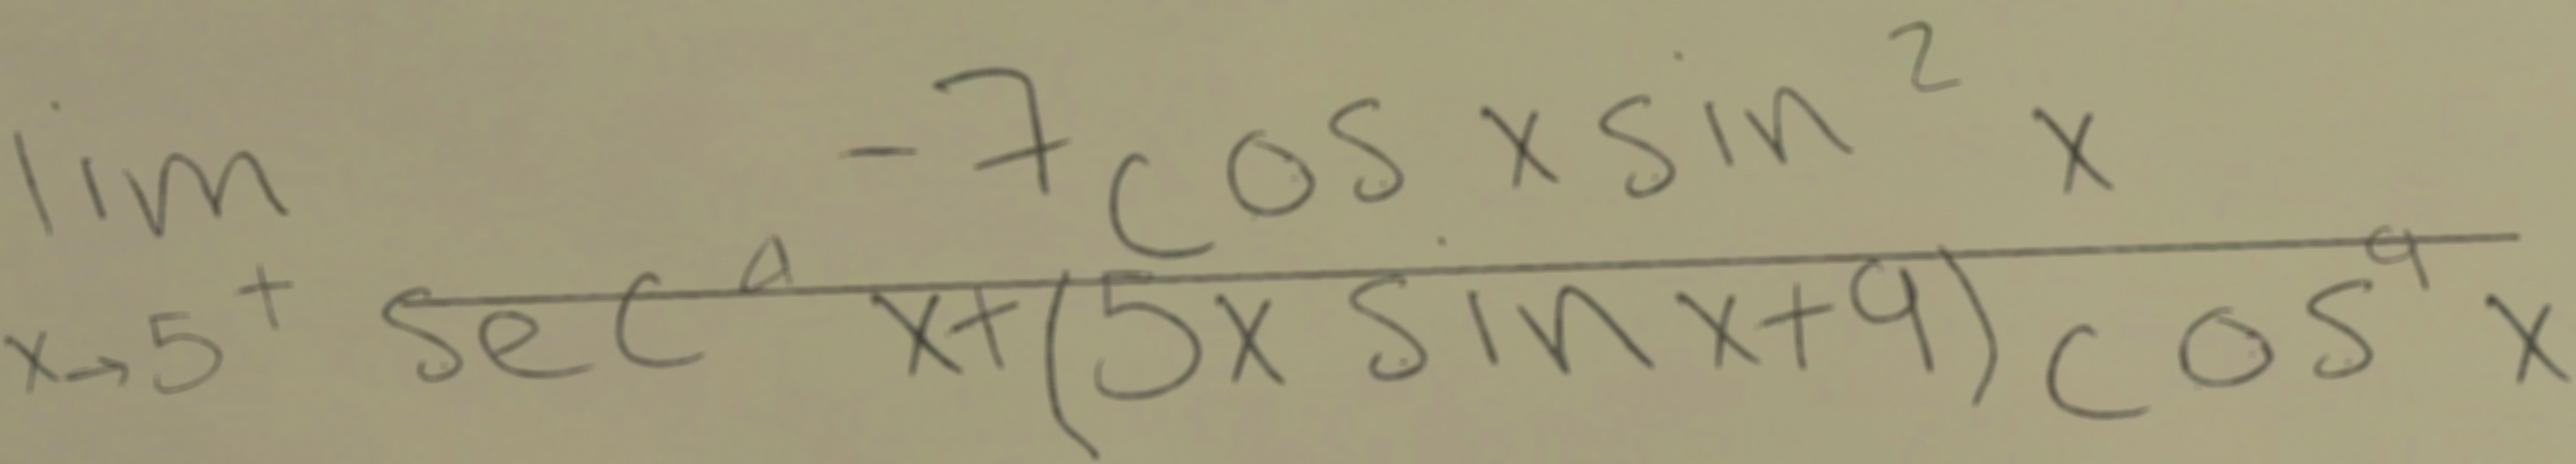 lim x→5⁺ (-7cos x sin² x)/(sec⁴ x+(5x sin x+9) cos⁹ x)